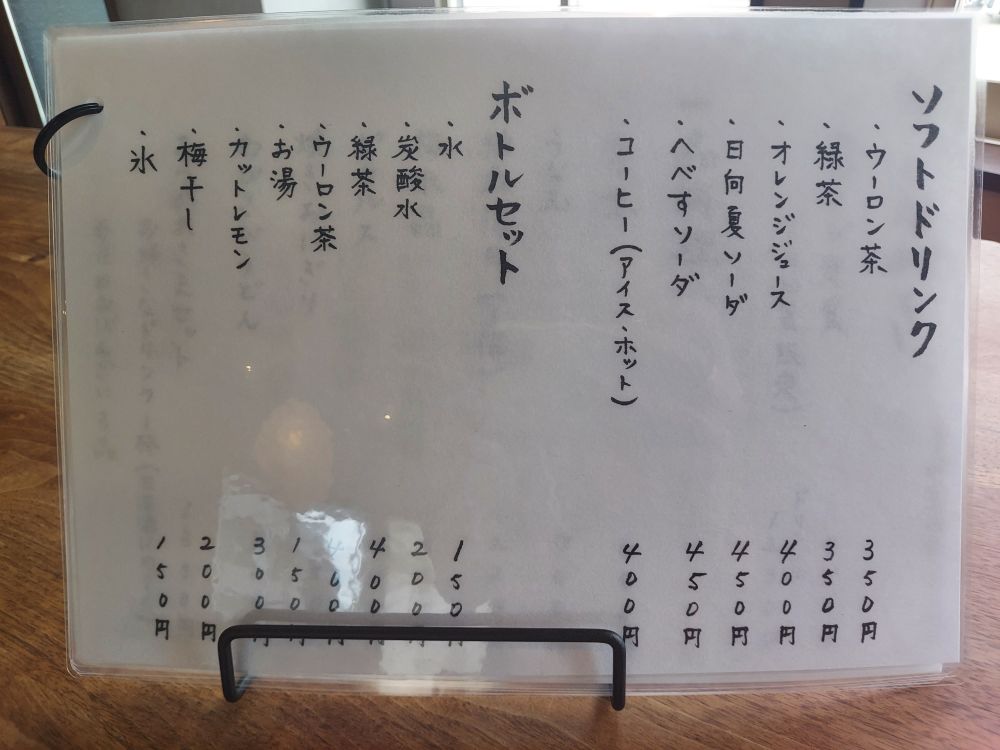 ソフトドリンク
・ウーロン茶 350円
・緑茶 350円
・オレンジジュース 400円
・日向夏ソーダ 450円
・へべすソーダ 450円
・コーヒー(アイス、ホット) 400円
ボトルセット
・水 150円
・炭酸水 200円
・緑茶 400円
・ウーロン茶 400円
・お湯 150円
・カットレモン 300円
・梅干し 200円
・氷 150円